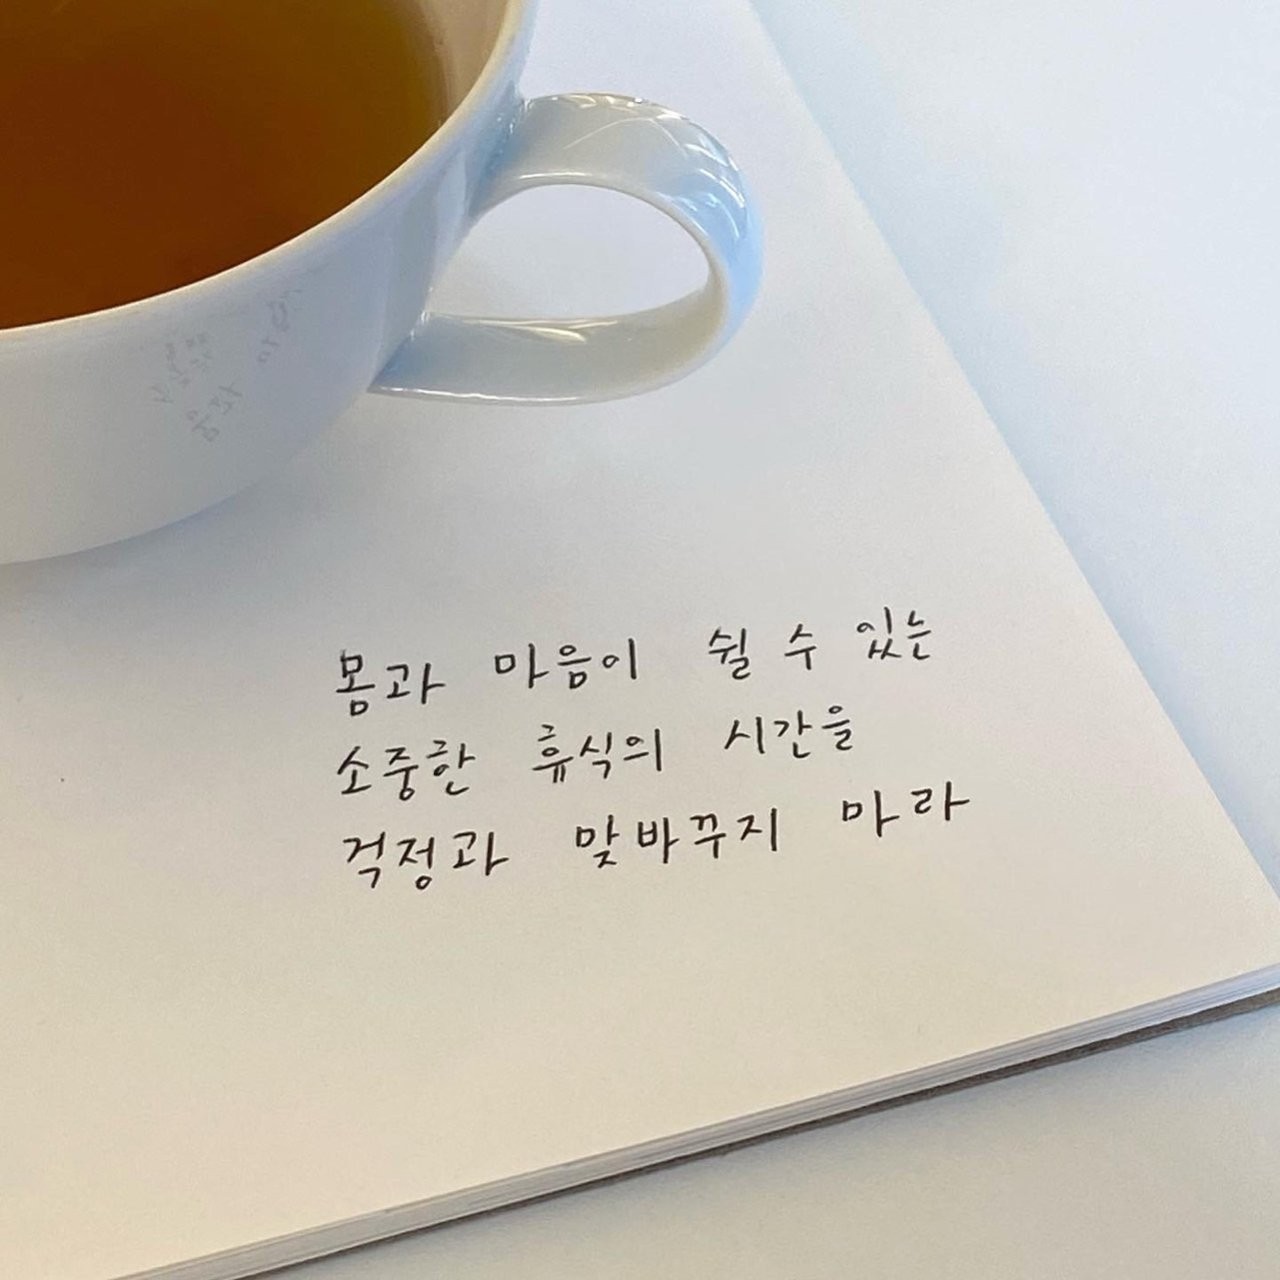 몸과 마음이 쉴 수 있는
소중한 휴식의 시간을
걱정과 맞바꾸지 마라